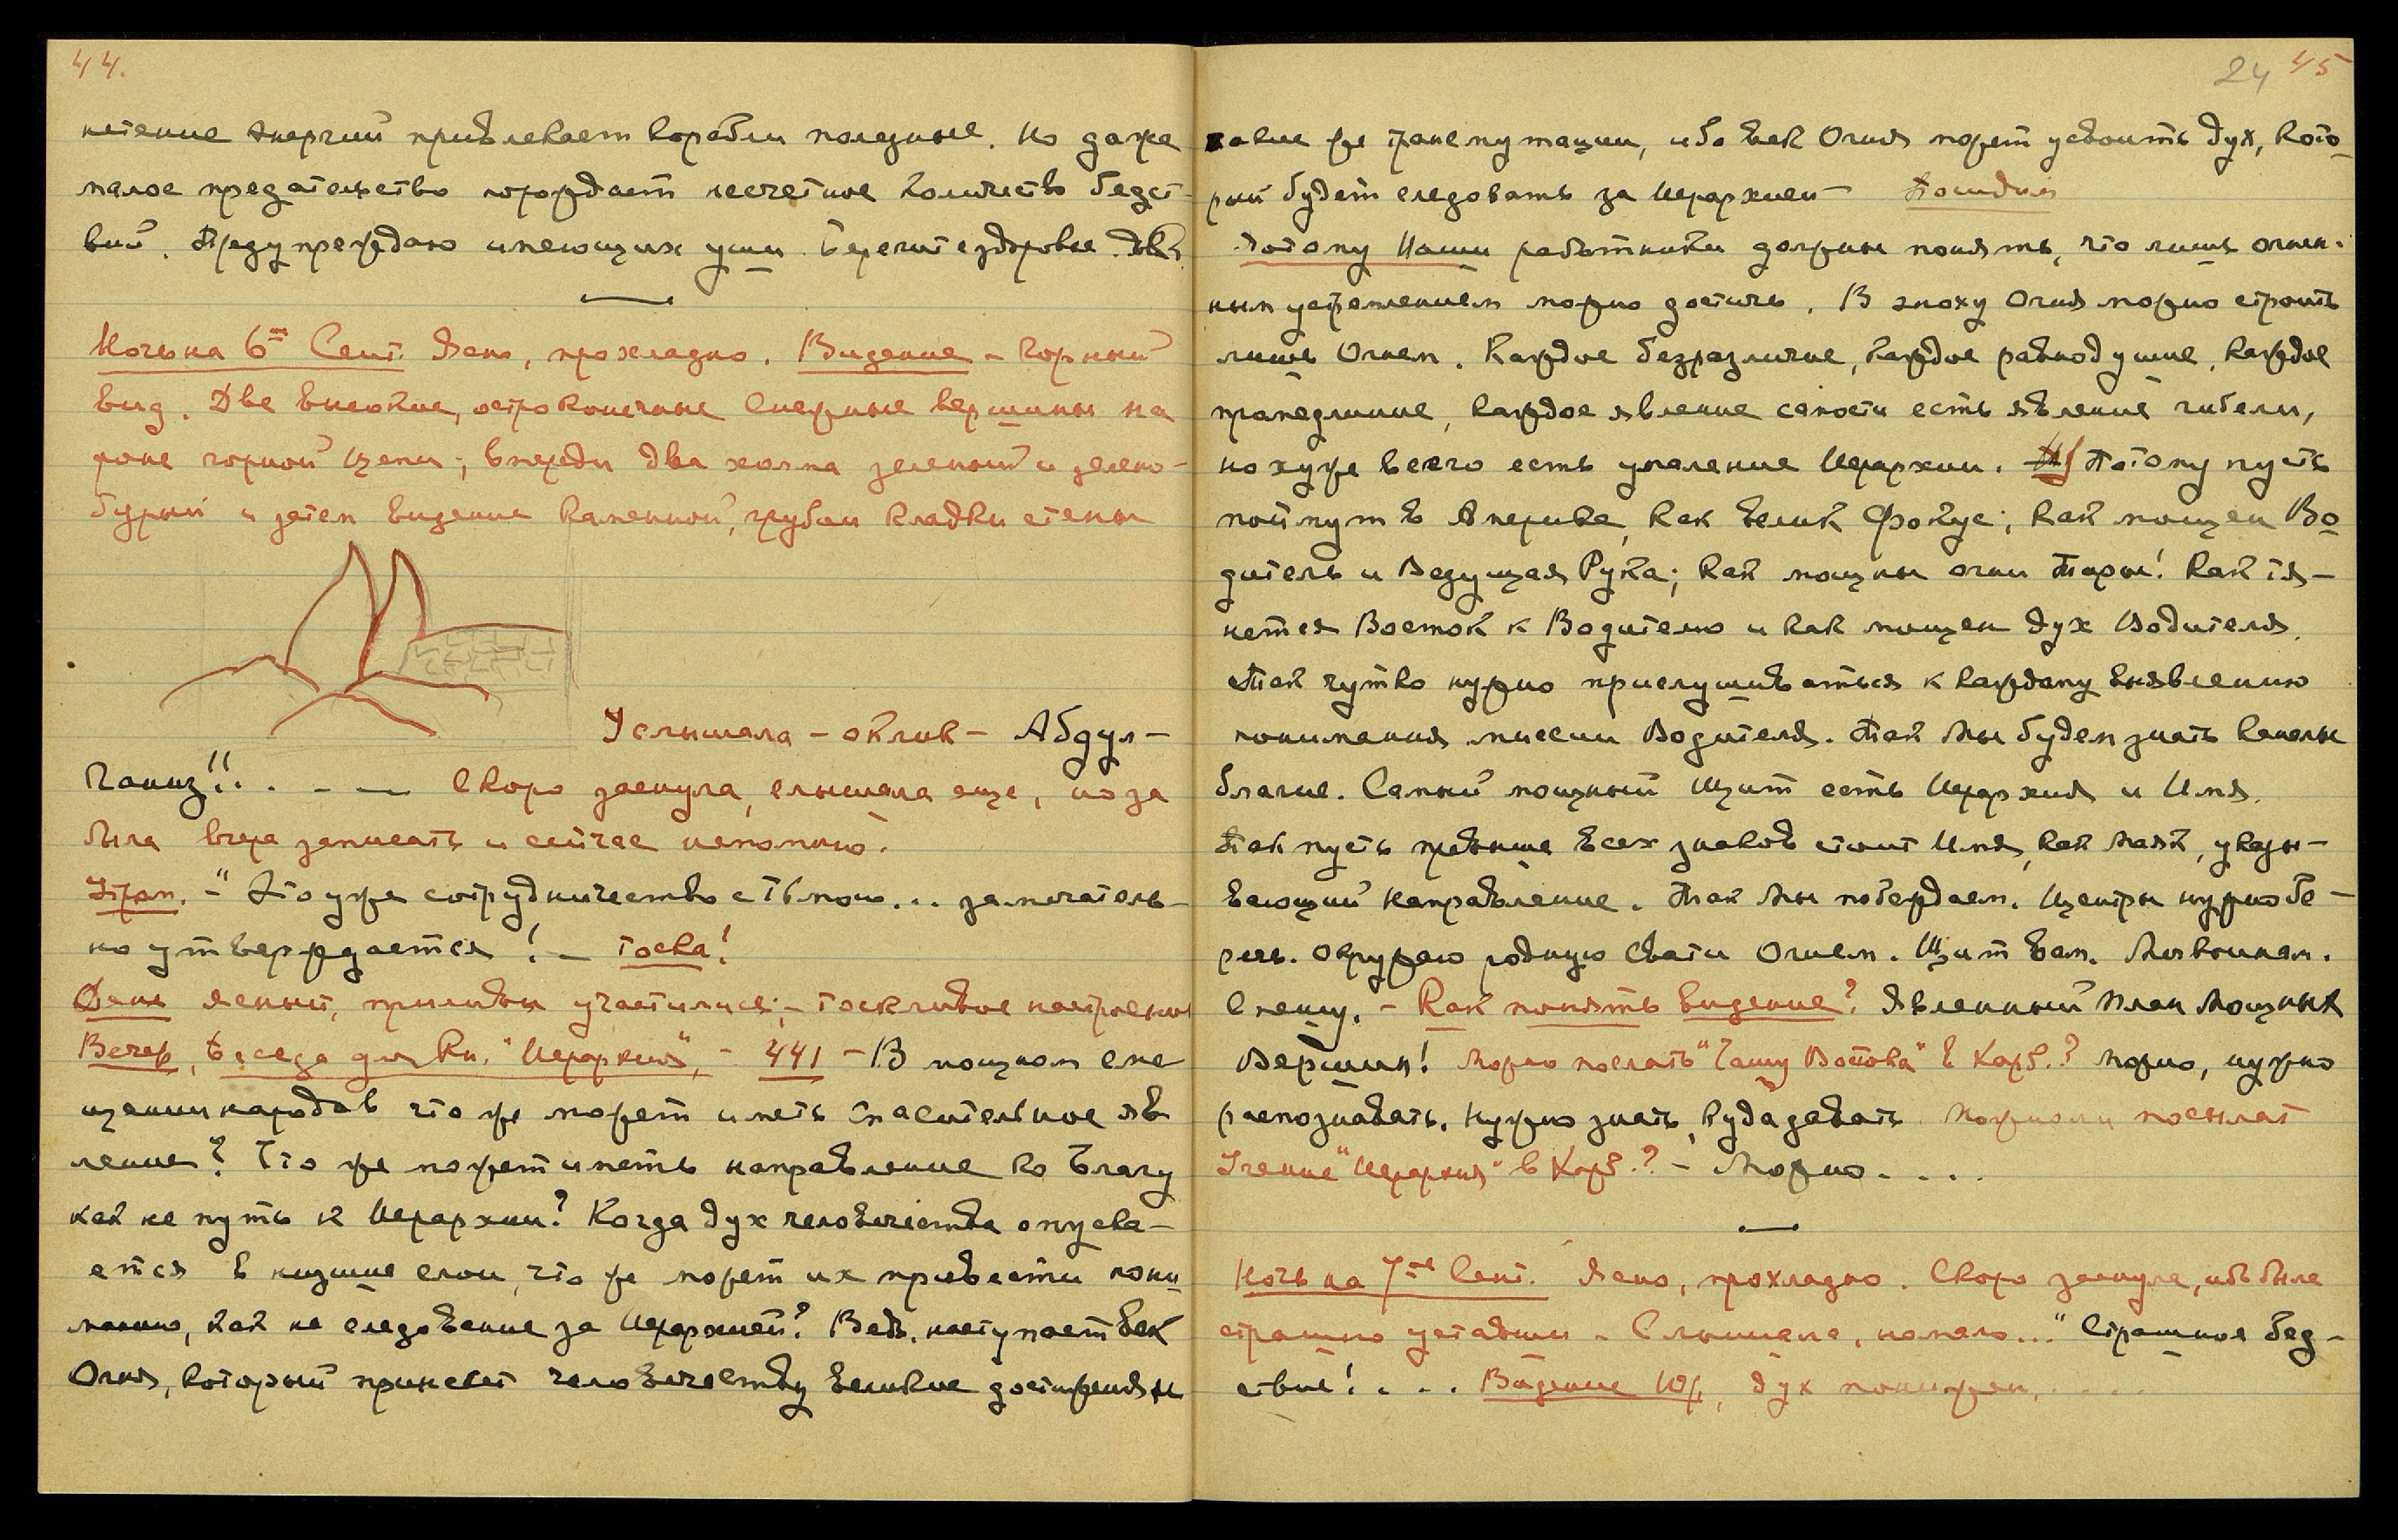 44.
нетение энергий привлекает корабли полезные. Но даже
малое предательство порождает несчетное количество бедст-
вий. Предупреждаю имеющих уши. Берегите здоровье.
Ночь на 6ое Сент. Ясно, прохладно. Видение – Горный
вид. Две высокие, остроконечные снежные вершины на
фоне горной цепи; впереди два холма зеленый и зелено-
бурый и затем видение каменной, грубой кладки стены
Услышала – оклик – Абдул-
Гамид!!.. – – Скоро заснула, слышала еще, но за
была вчера записать и сейчас непомню.
Утром. – "Это уже сотрудничество с тьмою... замечатель-
но утверждается! – тоска!
День ясный, приливы участились; – тоскливое настроение
Вечер, Беседа для Кн. "Иерархия", – 441 – В мощном сме
щении народов что же может иметь спасительное яв
ление? Что же может иметь направление ко Благу
как не путь к Иерархии? Когда дух человечества опуска-
ется в низшие слои, что же может их привести к пони
манию, как не следование за Иерархией? Ведь, наступает век
Огня, который принесет человечеству великие достижения и
24 45
такие же трансмутации, ибо век Огня может усвоить дух, кото-
рый будет следовать за Иерархией
Потому Наши работники должны понять, что лишь огнен-
ным устремлением можно достичь. В эпоху Огня можно строить
лишь Огнем. Каждое безразличие, каждое равнодушие, каждое
промедление, каждое явление самости есть явление гибели,
но хуже всего есть умаление Иерархии. Потому пусть
поймут в Америке, как велик Фокус; как мощен Во-
дитель и Ведущая Рука; как мощны огни Тары! Как тя-
нется Восток к Водителю и как мощен дух Водителя.
Так чутко нужно прислушиваться к каждому выявлению
понимания миссии Водителя. Так Мы будем знать каналы
благие. Самый мощный Щит есть Иерархия и Имя.
Так пусть превыше всех знаков стоит Имя, как маяк, указы-
вающий направление. Так Мы побеждаем. Центры нужно бе-
речь. Окружаю родную Свати Огнем. Щит Вам. Мы воинам.
Спешу. – Как понять видение? Явленный План Мощных
Вершин! Можно послать "Чашу Востока" в Харб.? Можно, нужно
распознавать. Нужно знать, куда давать. Можно ли послать
Учение "Иерархия" в Харб.? – Можно....
Ночь на 7ое Сент. Ясно, прохладно. Скоро заснула, ибо была
страшно уставши – Слышала, немало..." Страшное бед-
ствие!.... Видение Юр., дух понижен.....